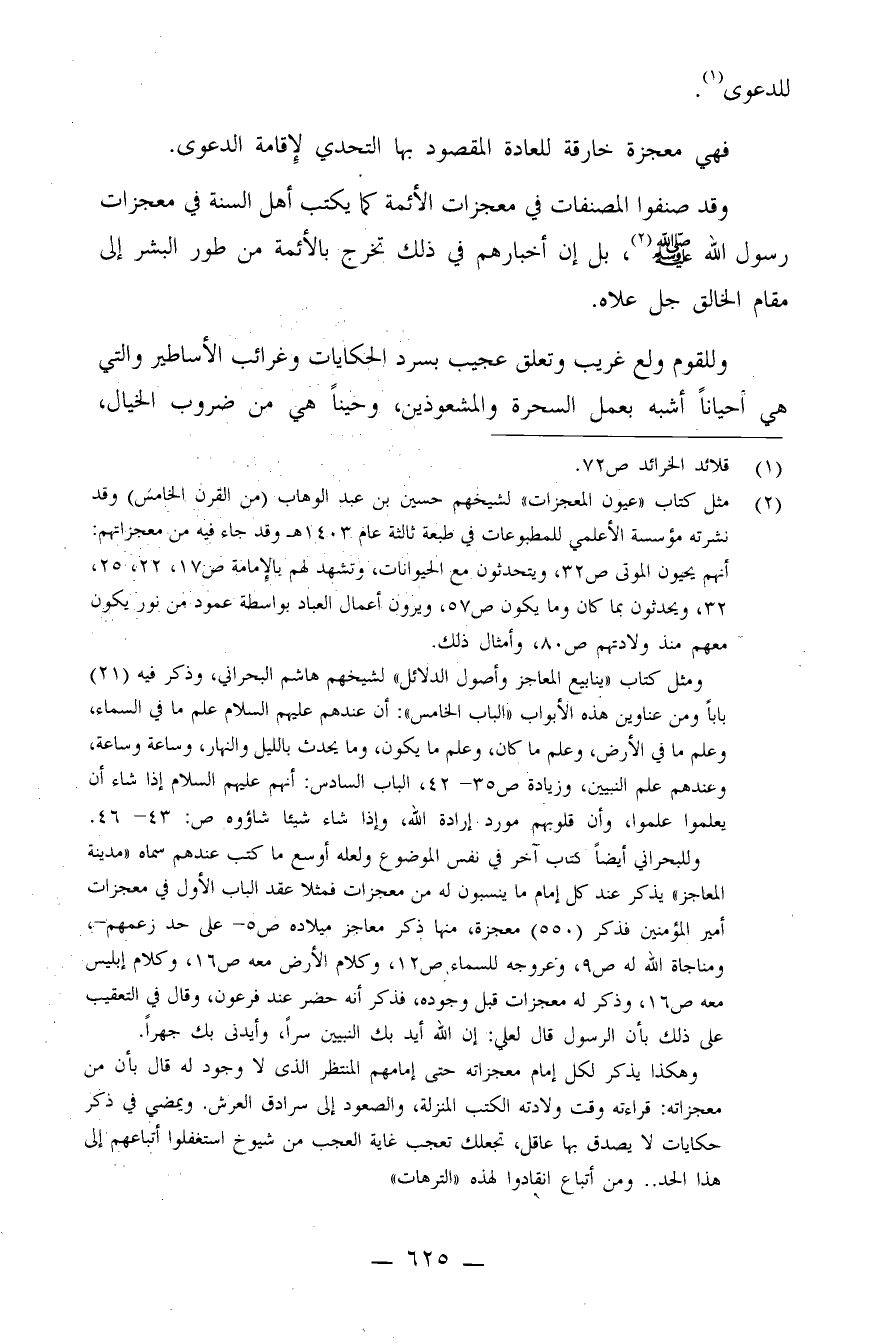 للدعوى(١).
فهي معجزة خارقة للعادة المقصود بها التحدي لإقامة الدعوى.
وقد صنفوا المصنفات في معجزات الأئمة كما يكتب أهل السنة في معجزات
رسول الله ﷺ(٢)، بل إن أخبارهم في ذلك تخرج بالأئمة من طور البشر إلى
مقام الخالق جل علاه.
وللقوم ولع غريب وتعلق عجيب بسرد الحكايات وغرائب الأساطير والتي
هي أحياناً أشبه بعمل السحرة والمشعوذين، وحيناً هي من ضروب الخيال،
(١) قلائد الخرائد ص٧٢.
(٢) مثل كتاب «عيون المعجزات» لشيخهم حسين بن عبد الوهاب (من القرن الخامس) وقد
نشرته مؤسسة الأعلمي للمطبوعات في طبعة ثالثة عام ١٤٠٣هـ وقد جاء فيه من معجزاتهم:
أنهم يحيون الموتى ص٣٢، ويتحدثون مع الحيوانات، وتشهد لهم بالإمامة ص١٧، ٢٢، ٢٥،
٣٢، ويحدثون بما كان وما يكون ص٥٧، ويرون أعمال العباد بواسطة عمود من نور يكون
معهم منذ ولادتهم ص٨٠، وأمثال ذلك.
ومثل كتاب «ينابيع المعاجز وأصول الدلائل» لشيخهم هاشم البحراني، وذكر فيه (٢١)
باباً ومن عناوين هذه الأبواب «الباب الخامس»: أن عندهم عليهم السلام علم ما في السماء،
وعلم ما في الأرض، وعلم ما كان، وعلم ما يكون، وما يحدث بالليل والنهار، وساعة وساعة،
وعندهم علم النبيين، وزيادة ص٣٥– ٤٢، الباب السادس: أنهم عليهم السلام إذا شاء أن
يعلموا علموا، وأن قلوبهم مورد إرادة الله، وإذا شاء شيئا شاؤوه ص: ٤٣– ٤٦.
وللبحراني أيضاً كتاب آخر في نفس الموضوع ولعله أوسع ما كتب عندهم سماه «مدينة
المعاجز» يذكر عند كل إمام ما ينسبون له من معجزات فمثلا عقد الباب الأول في معجزات
أمير المؤمنين فذكر (٥٥٠) معجزة، منها ذكر معاجز ميلاده ص٥– على حد زعمهم–،
ومناجاة الله له ص٩، وعروجه للسماء ص١٢، وكلام الأرض معه ص١٦، وكلام إبليس
معه ص١٦، وذكر له معجزات قبل وجوده، فذكر أنه حضر عند فرعون، وقال في التعقيب
على ذلك بأن الرسول قال لعلي: إن الله أيد بك النبيين سراً، وأيدنى بك جهراً.
وهكذا يذكر لكل إمام معجزاته حتى إمامهم المنتظر الذى لا وجود له قال بأن من
معجزاته: قراءته وقت ولادته الكتب المنزلة، والصعود إلى سرادق العرش. ويمضي في ذكر
حكايات لا يصدق بها عاقل، تجعلك تعجب غاية العجب من شيوخ استغفلوا أتباعهم إلى
هذا الحد.. ومن أتباع انقادوا لهذه «الترهات»
— ٦٢٥ —